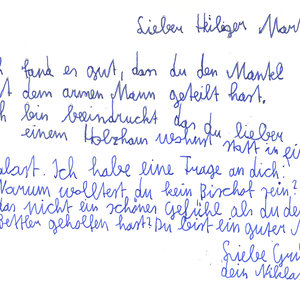 Lieber Heiliger Mar
fand es gut, dass du den Mantel
t dem armen Mann geteilt hast.
h bin beeindruckt das du lieber
einem Holzhaus wohnst statt in ei
alast. Ich habe eine Frage an dich:
Warum wolltest du kein Bischof sein?
das nicht ein schönes Gefühl als du de
Bettler geholfen hast? Du bist ein guter M
Liebe Grü
dein Niklas